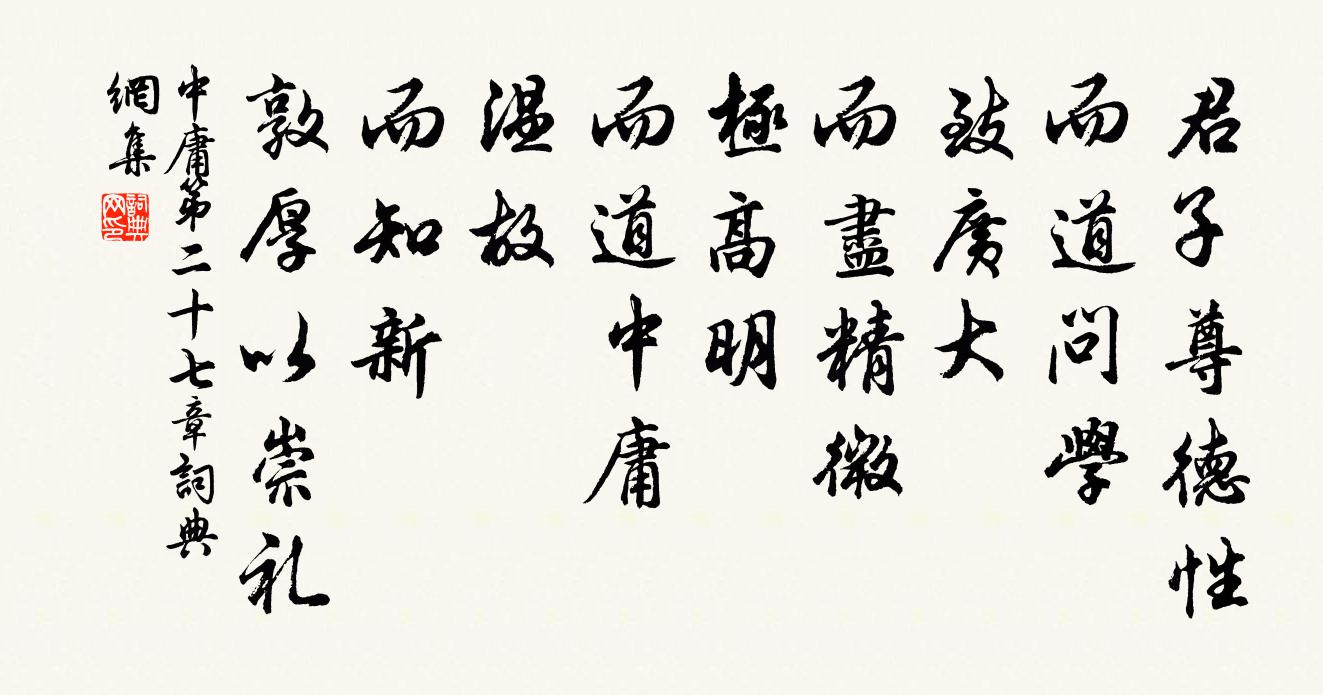 君子尊德性
而道問學
致廣大
而盡精微
極高明
而道中庸
溫故
而知新
敦厚以崇礼
中庸第二十七章詞典
網集
詞典网印